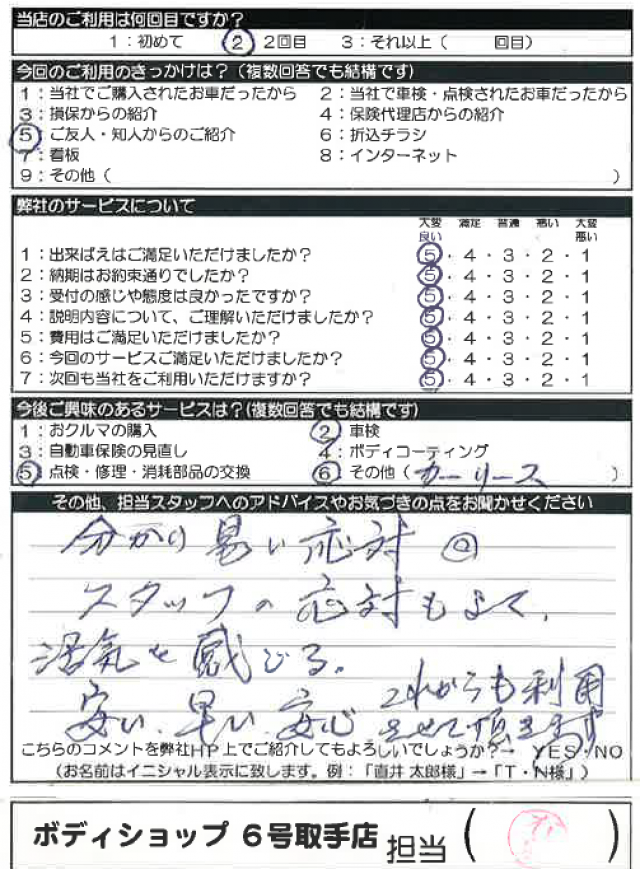 当店のご利用は何回目ですか?
1：初めて 2 2回目 3：それ以上（ 回目）
今回のご利用のきっかけは？（複数回答でも結構です）
1：当社でご購入されたお車だったから 2：当社で車検・点検されたお車だったから
3：損保からの紹介 4：保険代理店からの紹介
5：ご友人・知人からのご紹介 6：折込チラシ
7：看板 8：インターネット
9：その他（ ）
弊社のサービスについて
大変良い 満足 普通 悪い 大変悪い
1：出来ばえはご満足いただけましたか？ 5・4・3・2・1
2：納期はお約束通りでしたか？ 5・4・3・2・1
3：受付の感じや態度は良かったですか？ 5・4・3・2・1
4：説明内容について、ご理解いただけましたか？ 5・4・3・2・1
5：費用はご満足いただけましたか？ 5・4・3・2・1
6：今回のサービスご満足いただけましたか？ 5・4・3・2・1
7：次回も当社をご利用いただけますか？ 5・4・3・2・1
今後ご興味のあるサービスは？(複数回答でも結構です)
1：おクルマの購入 2 車検
3：自動車保険の見直し 4：ボディコーティング
5 点検・修理・消耗部品の交換 6 その他（カーリース ）
その他、担当スタッフへのアドバイスやお気づきの点をお聞かせください
分かり易い応対◎
スタッフの応対もよく、
活気を感じる。
安い、早い、安心 これからも利用
させて頂きます
こちらのコメントを弊社HP上でご紹介してもよろしいでしょうか？→ YES・NO
（お名前はイニシャル表示に致します。例：「直井 太郎様」→「T・N様」）
ボディショップ 6号取手店 担当（ ）